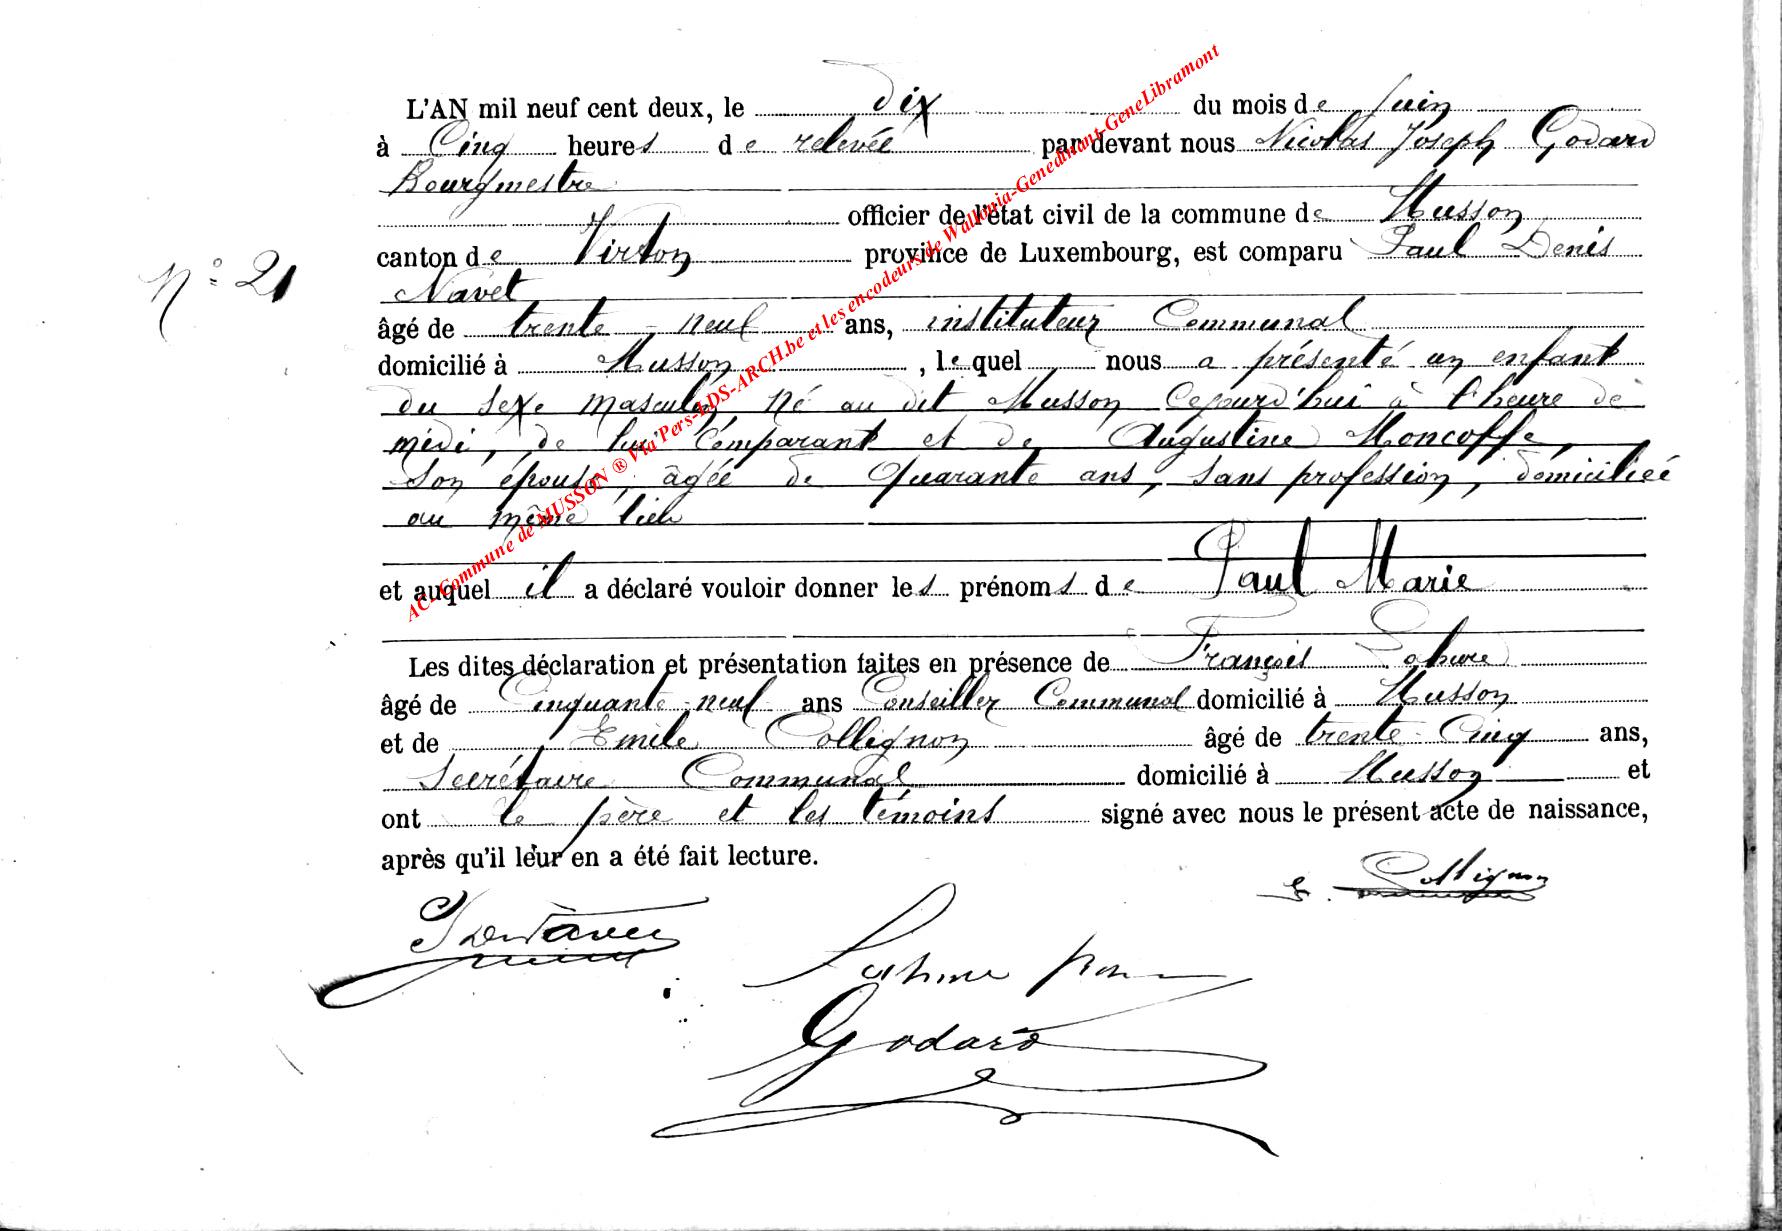 L'AN mil neuf cent deux, le dix du mois de Juin
à Cinq heures de relevée par devant nous Nicolas Joseph Godard
Bourgmestre
officier de l'état civil de la commune de Musson
canton de Virton province de Luxembourg, est comparu Paul Denis
N° 21
Navet
âgé de trente-neuf ans, instituteur Communal
domicilié à Musson, lequel nous a présenté un enfant
du sexe masculin, né au dit Musson Cejourd'hui à l'heure de
midi, de lui Comparant et de Augustine Moncoffe,
Son épouse, âgée de Quarante ans, sans profession, domiciliée
au même lieu
et auquel il a déclaré vouloir donner les prénoms de Paul Marie
Les dites déclaration et présentation faites en présence de François Lahure
âgé de Cinquante neuf ans Conseiller Communal domicilié à Musson
et de Emile Collignon âgé de trente-Cinq ans,
Secrétaire Communal domicilié à Musson et
ont le père et les témoins signé avec nous le présent acte de naissance,
après qu'il leur en a été fait lecture.
E. Collignon
Godard
AC-Commune de MUSSON ® Via Pers-LDS-ARCH.be et les encodeurs de Wallonia-Genedinant-GeneLibramont